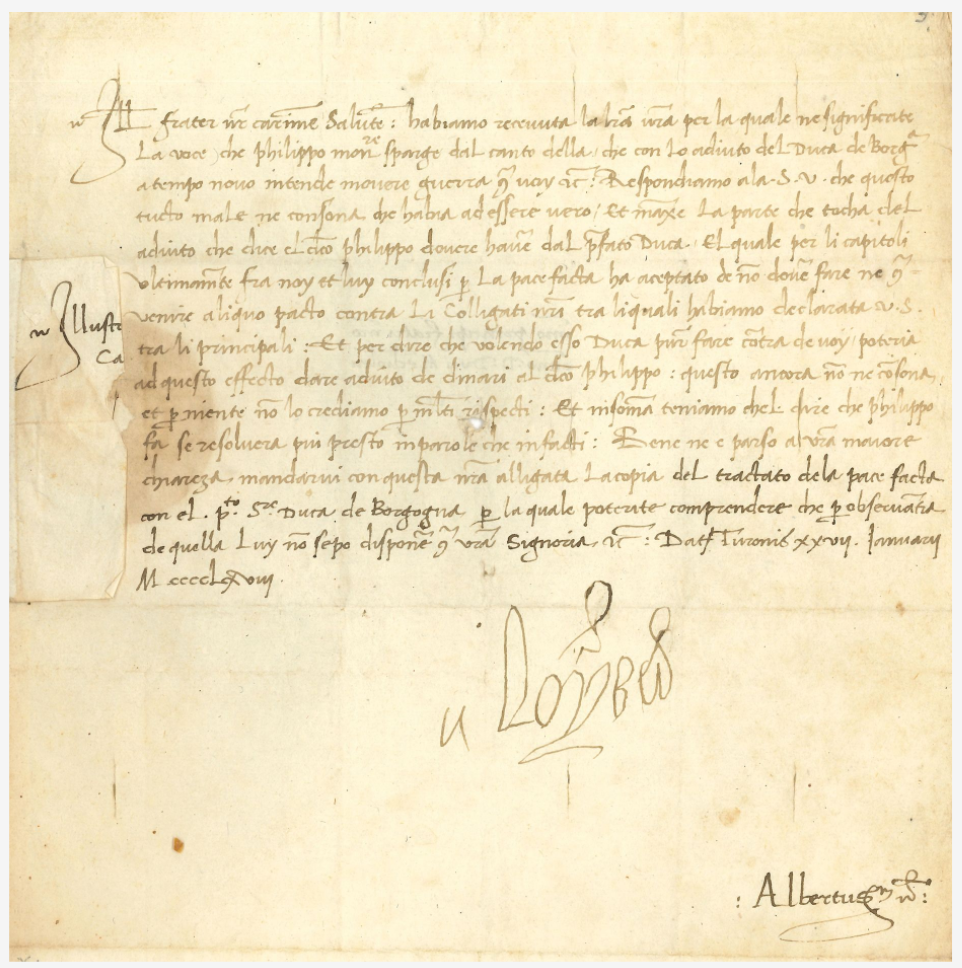 Ill. frater nr̃ carme Salute : habiamo recevuta la lr̃a vr̃a per la quale ne significate
La voce che philippo monsre sparge dal canto della, che con lo adiuto del Duca de Borga
a tempo novo intende movere guerra cõ voy &c. Respondiamo ala .S.V. che questo
tucto male ne consona che habia ad essere vero / Et maxe La parte che tocha del
adiuto che dice el dco philippo dovere havẽ dal p̃fato Duca. El quale per li capitoli
Ultimamẽte fra noy et luy conclusi ꝑ La pace facta ha aceptato de nõ dovẽ fare ne cõ-
venire aliquo pacto contra Li Colligati nr̃i tra li quali habiamo declarata V.S.
tra li principali : Et per dire che volendo esso Duca pur fare cõtra de voy / poteria
ad questo effecto dare adiuto de dinari al dco philippo : questo ancora nõ ne cõsona,
et ꝑ niente nõ lo crediamo ꝑ mlti rispecti : Et in soma teniamo chel dire che philippo
fa se resolvera piu presto in parole che in facti : Bene ne e parso a vr̃a maiore
chiareza, mandarvi con questa nr̃a alligata La copia del tractato dela pace facta
con el pto. Sre Duca de Borgogna ꝑ la quale poterite comprendere che ꝑ observãtia
de quella Luy nõ se po disponẽ cõ vr̃a Signoria, &c : Dat̃ Turonis xxvii. Ianuarii
M ccccLxxviii.
Illustr
Ca
Loys
Albertus